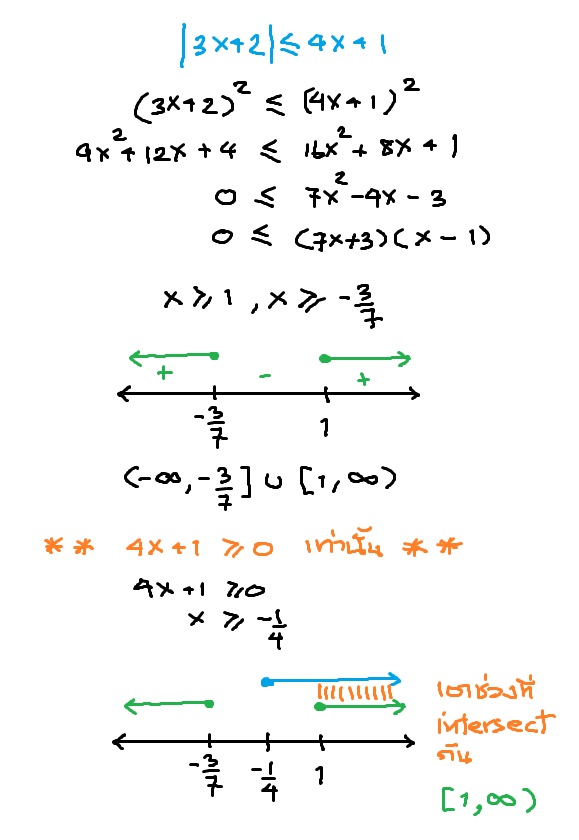 |3x+2| ≤ 4x+1
(3x+2)² ≤ (4x+1)²
9x²+12x+4 ≤ 16x²+8x+1
0 ≤ 7x²-4x-3
0 ≤ (7x+3)(x-1)
x ≥ 1, x ≥ -3/7
+ - +
-3/7 1
(-∞, -3/7] ∪ [1, ∞)
** 4x+1 ≥ 0 เท่านั้น **
4x+1 ≥ 0
x ≥ -1/4
-3/7 -1/4 1
เอาช่วงที่
intersect
กัน
[1, ∞)